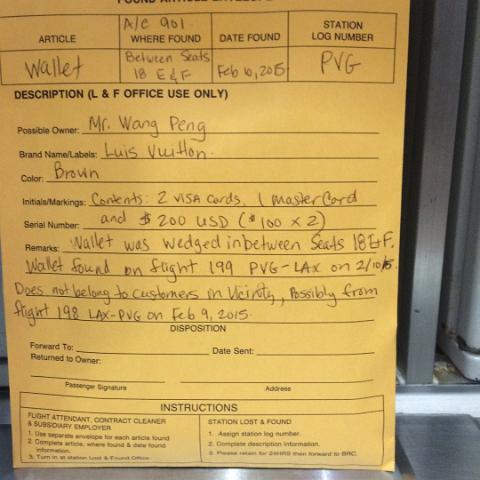 FOUND ARTICLE ENVELOPE
ARTICLE
A/C 901.
WHERE FOUND
DATE FOUND
STATION
LOG NUMBER
Wallet
Between Seats
18 E & F
Feb 10, 2015
PVG
DESCRIPTION (L & F OFFICE USE ONLY)
Possible Owner: Mr. Wang Peng
Brand Name/Labels: Luis Vuitton.
Color: Brown
Initials/Markings: Contents: 2 VISA cards, 1 masterCard
Serial Number: and $200 USD ($100 x 2)
Remarks: Wallet was wedged inbetween Seats 18E&F.
Wallet found on flight 199 PVG-LAX on 2/10/15.
Does not belong to customers in Vicinity, Possibly from
flight 198 LAX-PVG on Feb 9, 2015.
DISPOSITION
Forward To: Date Sent:
Returned to Owner:
Passenger Signature Address
INSTRUCTIONS
FLIGHT ATTENDANT, CONTRACT CLEANER
& SUBSIDIARY EMPLOYER
1. Use separate envelope for each article found
2. Complete article, where found & date found
information.
3. Turn in at station Lost & Found Office
STATION LOST & FOUND
1. Assign station log number.
2. Complete description information.
3. Please retain for 24HRS then forward to BRC.